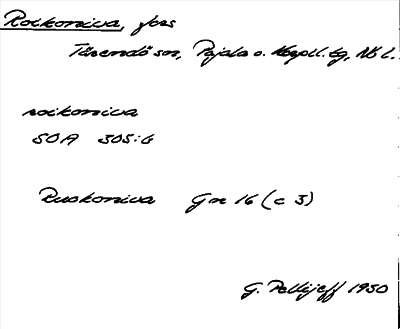 Roikoniva, fors
Tärendö sn, Pajala o. Korpil. tg, Nb l.
roikoniva
SOA 305:6
Ruskoniva Gr 16 (c 3)
G. Pellijeff 1950